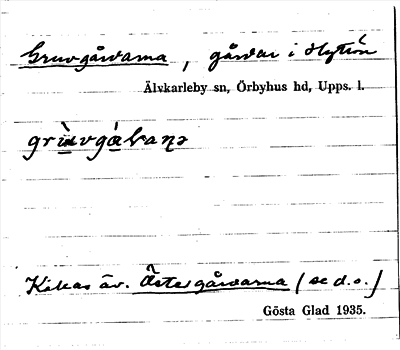 Gruvgårdarna, gårdar i Hyttön
Älvkarleby sn, Örbyhus hd, Upps. l.
grùvgàḷaṇə
Kallas äv. Östergårdarna (se d.o.)
Gösta Glad 1935.